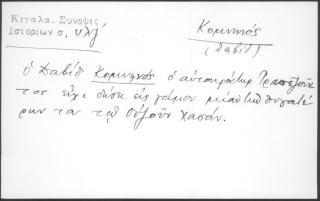 Κιγάλα. Σύνοψις
Ἱστοριῶν σ, υλγ'
Κομνηνός
(Δαβίδ)
ὁ Δαβίδ Κομνηνός ὁ αὐτοκράτωρ Τραπεζοῦν
τος εἶχε δώσει εἰς γάμον μίαν τῶν θυγατέ
ρων του τῷ Οὐζοῦν Χασάν.